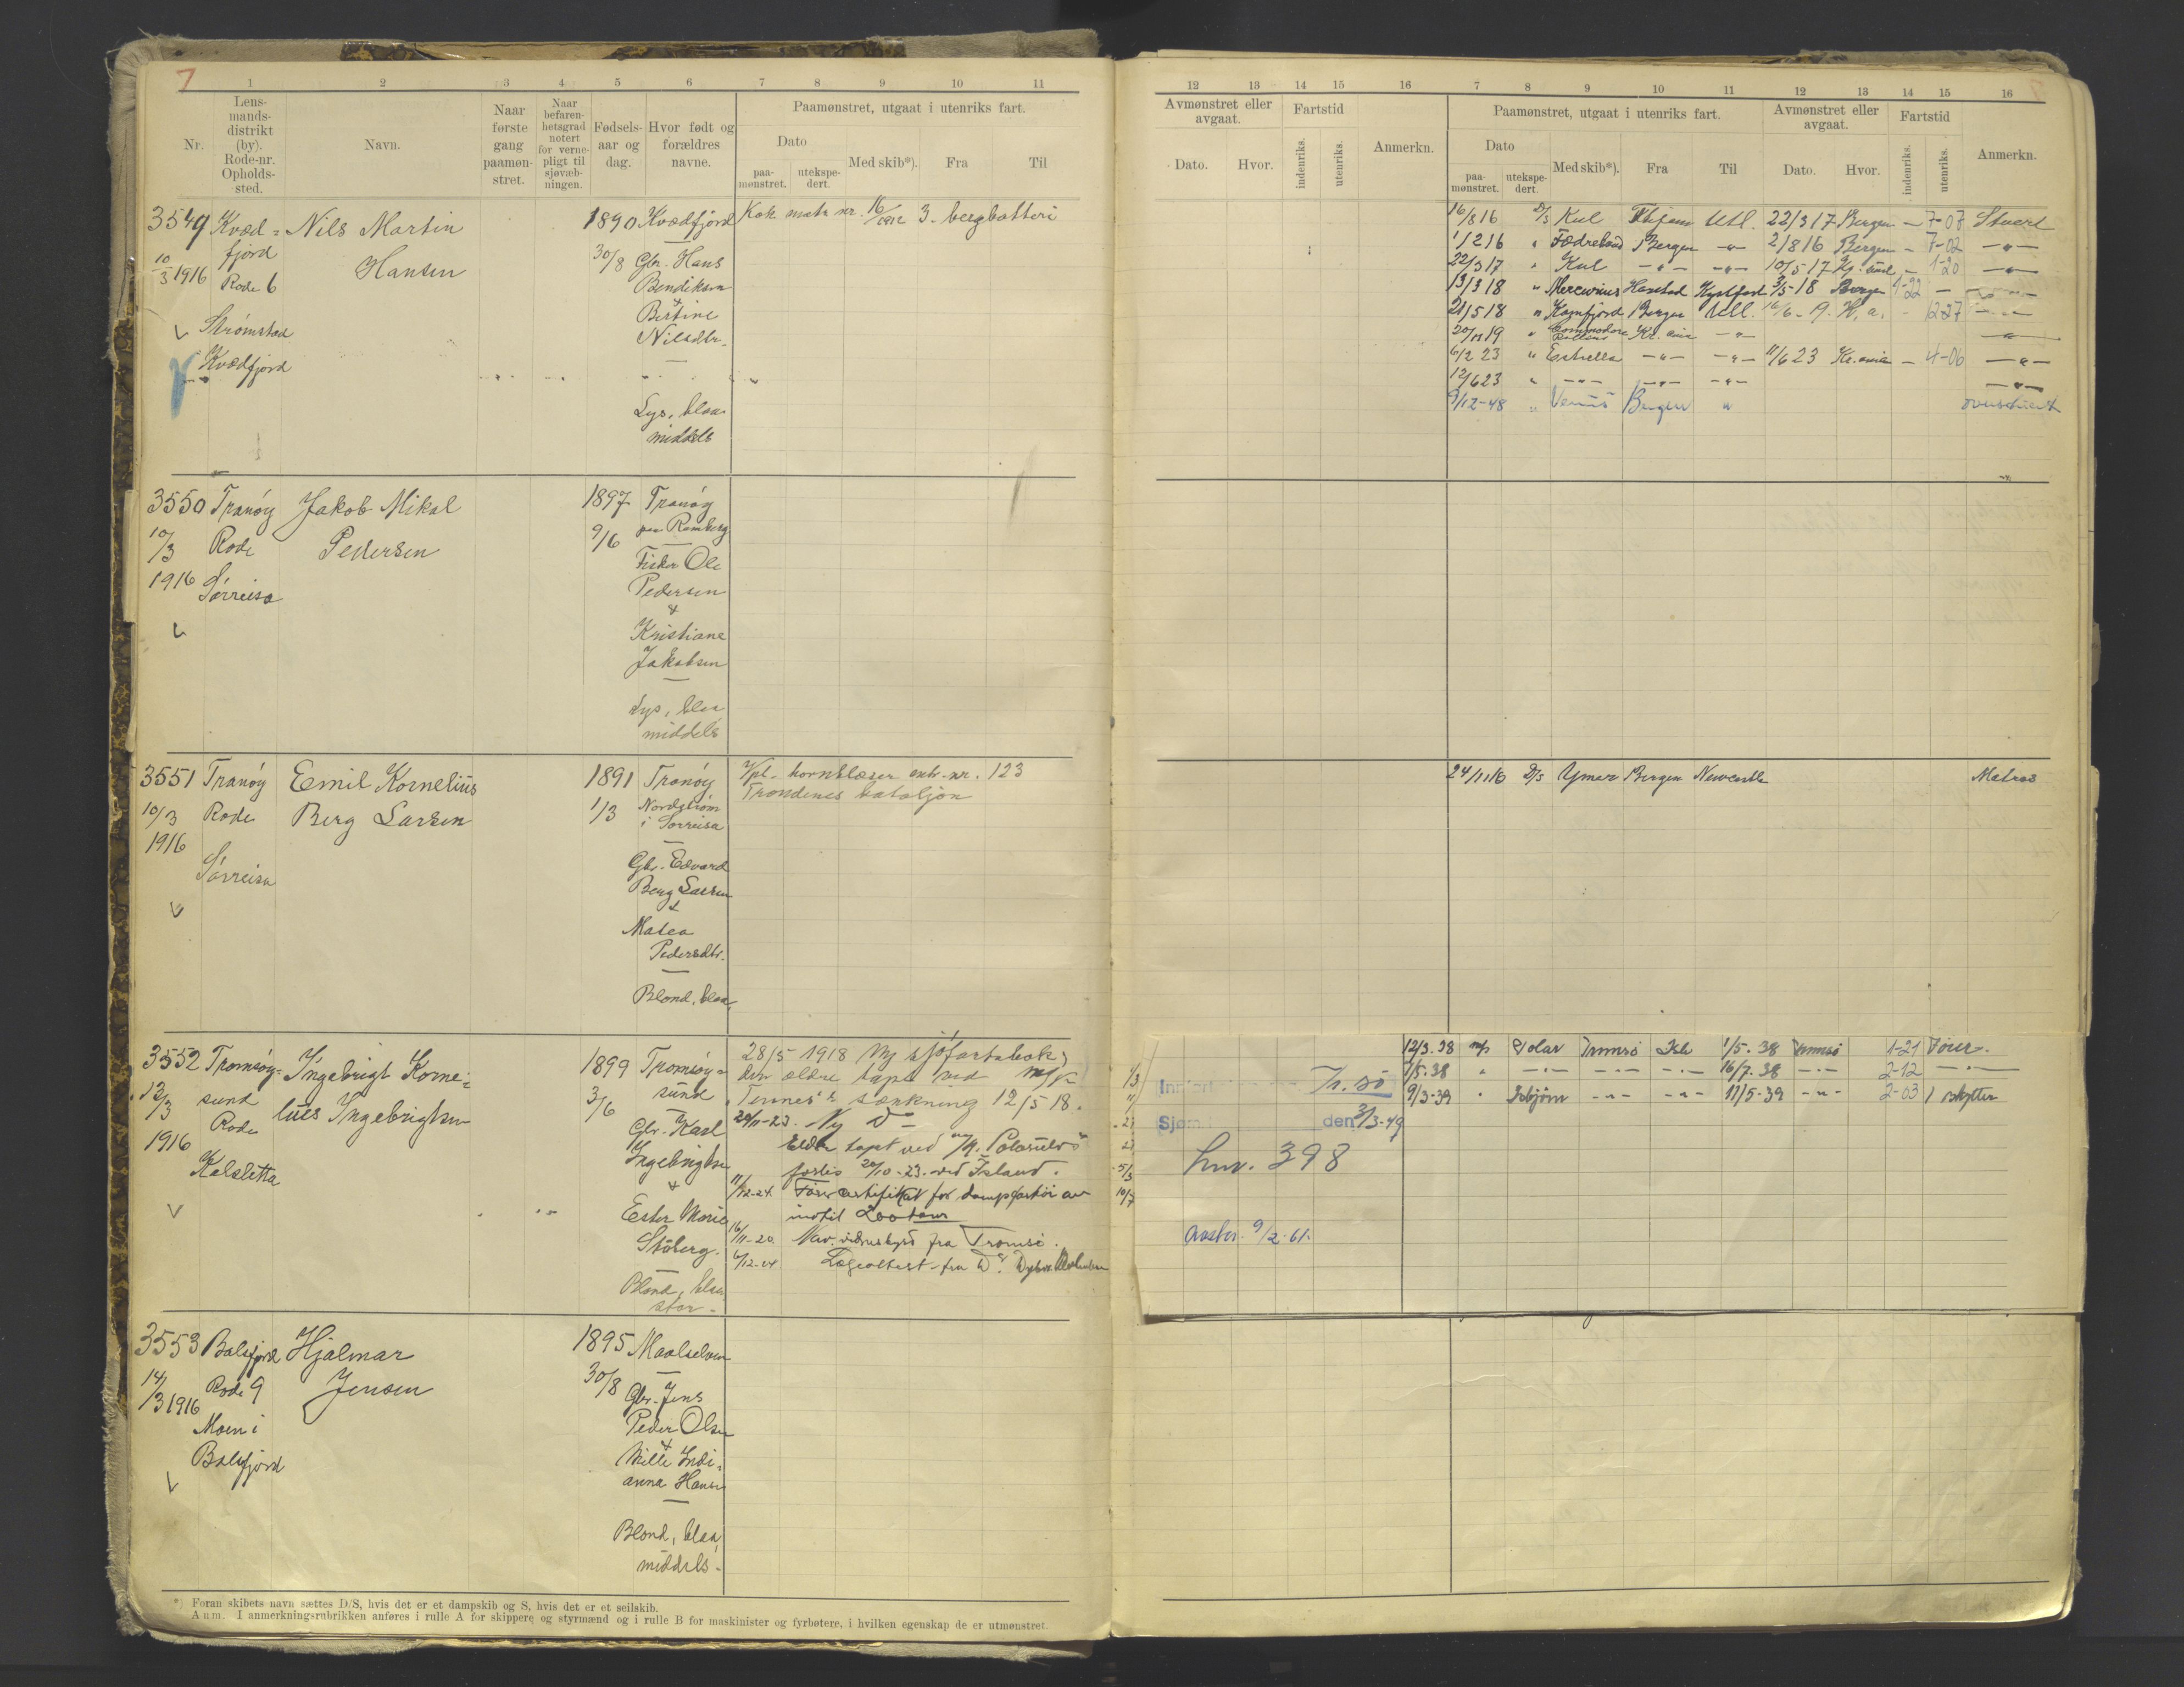 7
1 2 3 4 5 6 7 8 9 10 11
Nr.
Lens-
mands-
distrikt
(by).
Rode-nr.
Opholds-
sted.
Navn.
Naar
første
gang
paamøn-
stret.
Naar
befaren-
hetsgrad
notert
for verne-
pligt til
sjøvæb-
ningen.
Fødsels-
aar og
dag.
Hvor født og
forældres
navne.
Paamønstret, utgaat i utenriks fart.
Dato
paa-
mønstret.
utekspe-
dert.
Med skib*).
Fra
Til
3549
10/3 1916
Kvæd=
fjord
Rode 6
Strømstad
Kvædfjord
Nils Martin
Hansen
1890
30/8
Kvædfjord
Gbr. Hans
Bendiksen
&
Bertine
Nilsdtr.
Lys, blaa
middels
Kok matr nr. 16/1912 3. bergbatteri
3550
10/3
1916
Tranøy
Rode
Sørreisa
Jakob Mikal
Pedersen
1897
9/6
Tranøy
paa Ramberg
Fisker Ole
Pedersen
&
Kristiane
Jakobsen
Lys, blaa
middels
3551
10/3
1916
Tranøy
Rode
Sørreisa
Emil Kornelius
Berg Larsen
1891
1/3
Tranøy
Nordstrøm
i Sørreisa
Gbr. Edvard
Berg Larsen
&
Matea
Pedersdtr.
Blond, blaa,
Vpl. hornblaser extr. nr. 123
Trondenes bataljon
3552
13/3
1916
Tromsøy=
sund
Rode
Kalsletta
Ingebrigt Korne=
lius Ingebrigtsen
1899
3/6
Tromsøy=
sund
Gbr. Karl
Ingebrigtsen
&
Ester Marie
Stoberg.
Blond, blaa
stor.
28/5 1918 Ny sjøfartsbok,
den ældre tapt ved M/K
"Tennes's" sænkning 12/5 18.
20/11-23. Ny Do
Eldre tapt ved M/K. "Polarulv's"
forlis 20/10-23. ved Island.
11/12-24. Førercertifikat for dampfartøi av
indtil 200 tons
16/11-20. Nav. vidnesbyrd fra Tromsø.
6/12-24 Lægeattest fra Dr.
3553
14/3 1916
Balsfjord
Rode 9
Moen i
Balsfjord
Hjalmar
Jensen
1895
30/8
Maalselven
Gbr. Jens
Peder Olsen
&
Mille Indi=
anna Hansen
Blond, blaa,
middels.
*) Foran skibets navn sættes D/S, hvis det er et dampskib og S, hvis det er et seilskib.
Anm. I anmerkningsrubrikken anføres i rulle A for skippere og styrmænd og i rulle B for maskinister og fyrbøtere, i hvilken egenskap de er utmønstret.
12 13 14 15 16 7 8 9 10 11 12 13 14 15 16
Avmønstret eller
avgaat.
Dato.
Hvor.
Fartstid
indenriks.
utenriks.
Anmerkn.
Paamønstret, utgaat i utenriks fart.
Dato
paa-
mønstret.
utekspe-
dert.
Med skib*).
Fra
Til
Avmønstret eller
avgaat.
Dato.
Hvor.
Fartstid
indenriks.
utenriks.
Anmerkn.
16/8 16 D/S Kul Thjem Utl. 22/3 17 Bergen — 7-07 Stuert
1/2 16 " Fædreland Bergen -"- 2/8 16 Bergen - 7-02 -"-
22/3 17 " Kul -"- -"- 10/5-17 - 1-20 -"-
13/3 18 " Mercurius Harstad Kystfart 3/5-18 Bergen 1-22 — -"-
21/5 18 " Kaafjord Bergen Utl. - 12-27 -"-
20/11 19 " Kr.ania -"- -"-
6/2 23 " Estrella -"- -"- 11/6 23 Kr.ania — 4-06 -"-
12/6 23 " -"- -"- -"- -"-
9/12-48 " Venus Bergen " overstuert
24/11 16 D/S Ymer Bergen Newcastle Matros
12/3.38 M/S Polar Tromsø Ish 1/5.38 Tromsø 1-21 Fører.
7/5.38 " -"- -"- -"- 16/7.38 -"- 2-12 -"-
9/3-39 " Isbjørn -"- -"- 11/5-39 -"- 2-03 1 skytter
Innført Tr.sø
Sjøm den 3/3-49
hnr. 398
Avsker. 9/2-61.